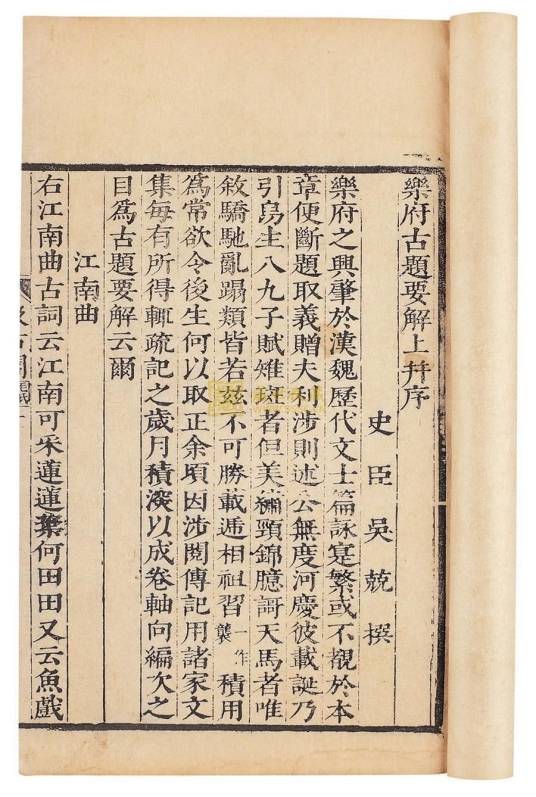 樂府古題要解上并序
史臣吳兢撰
樂府之興肇於漢魏歷代文士篇詠寔繁或不覩於本
章便斷題取義贈夫利涉則述公無度河慶彼載誕乃
引烏生八九子賦雉斑者但美繡頸錦臆謌天馬者唯
敘驕馳亂蹋類皆若茲不可勝載遞相祖習一作襲積用
爲常欲令後生何以取正余頃因涉閱傳記用諸家文
集每有所得輒疏記之歲月積深以成卷軸向編次之
目爲古題要解云爾
江南曲
右江南曲古詞云江南可采蓮蓮葉何田田又云魚戲